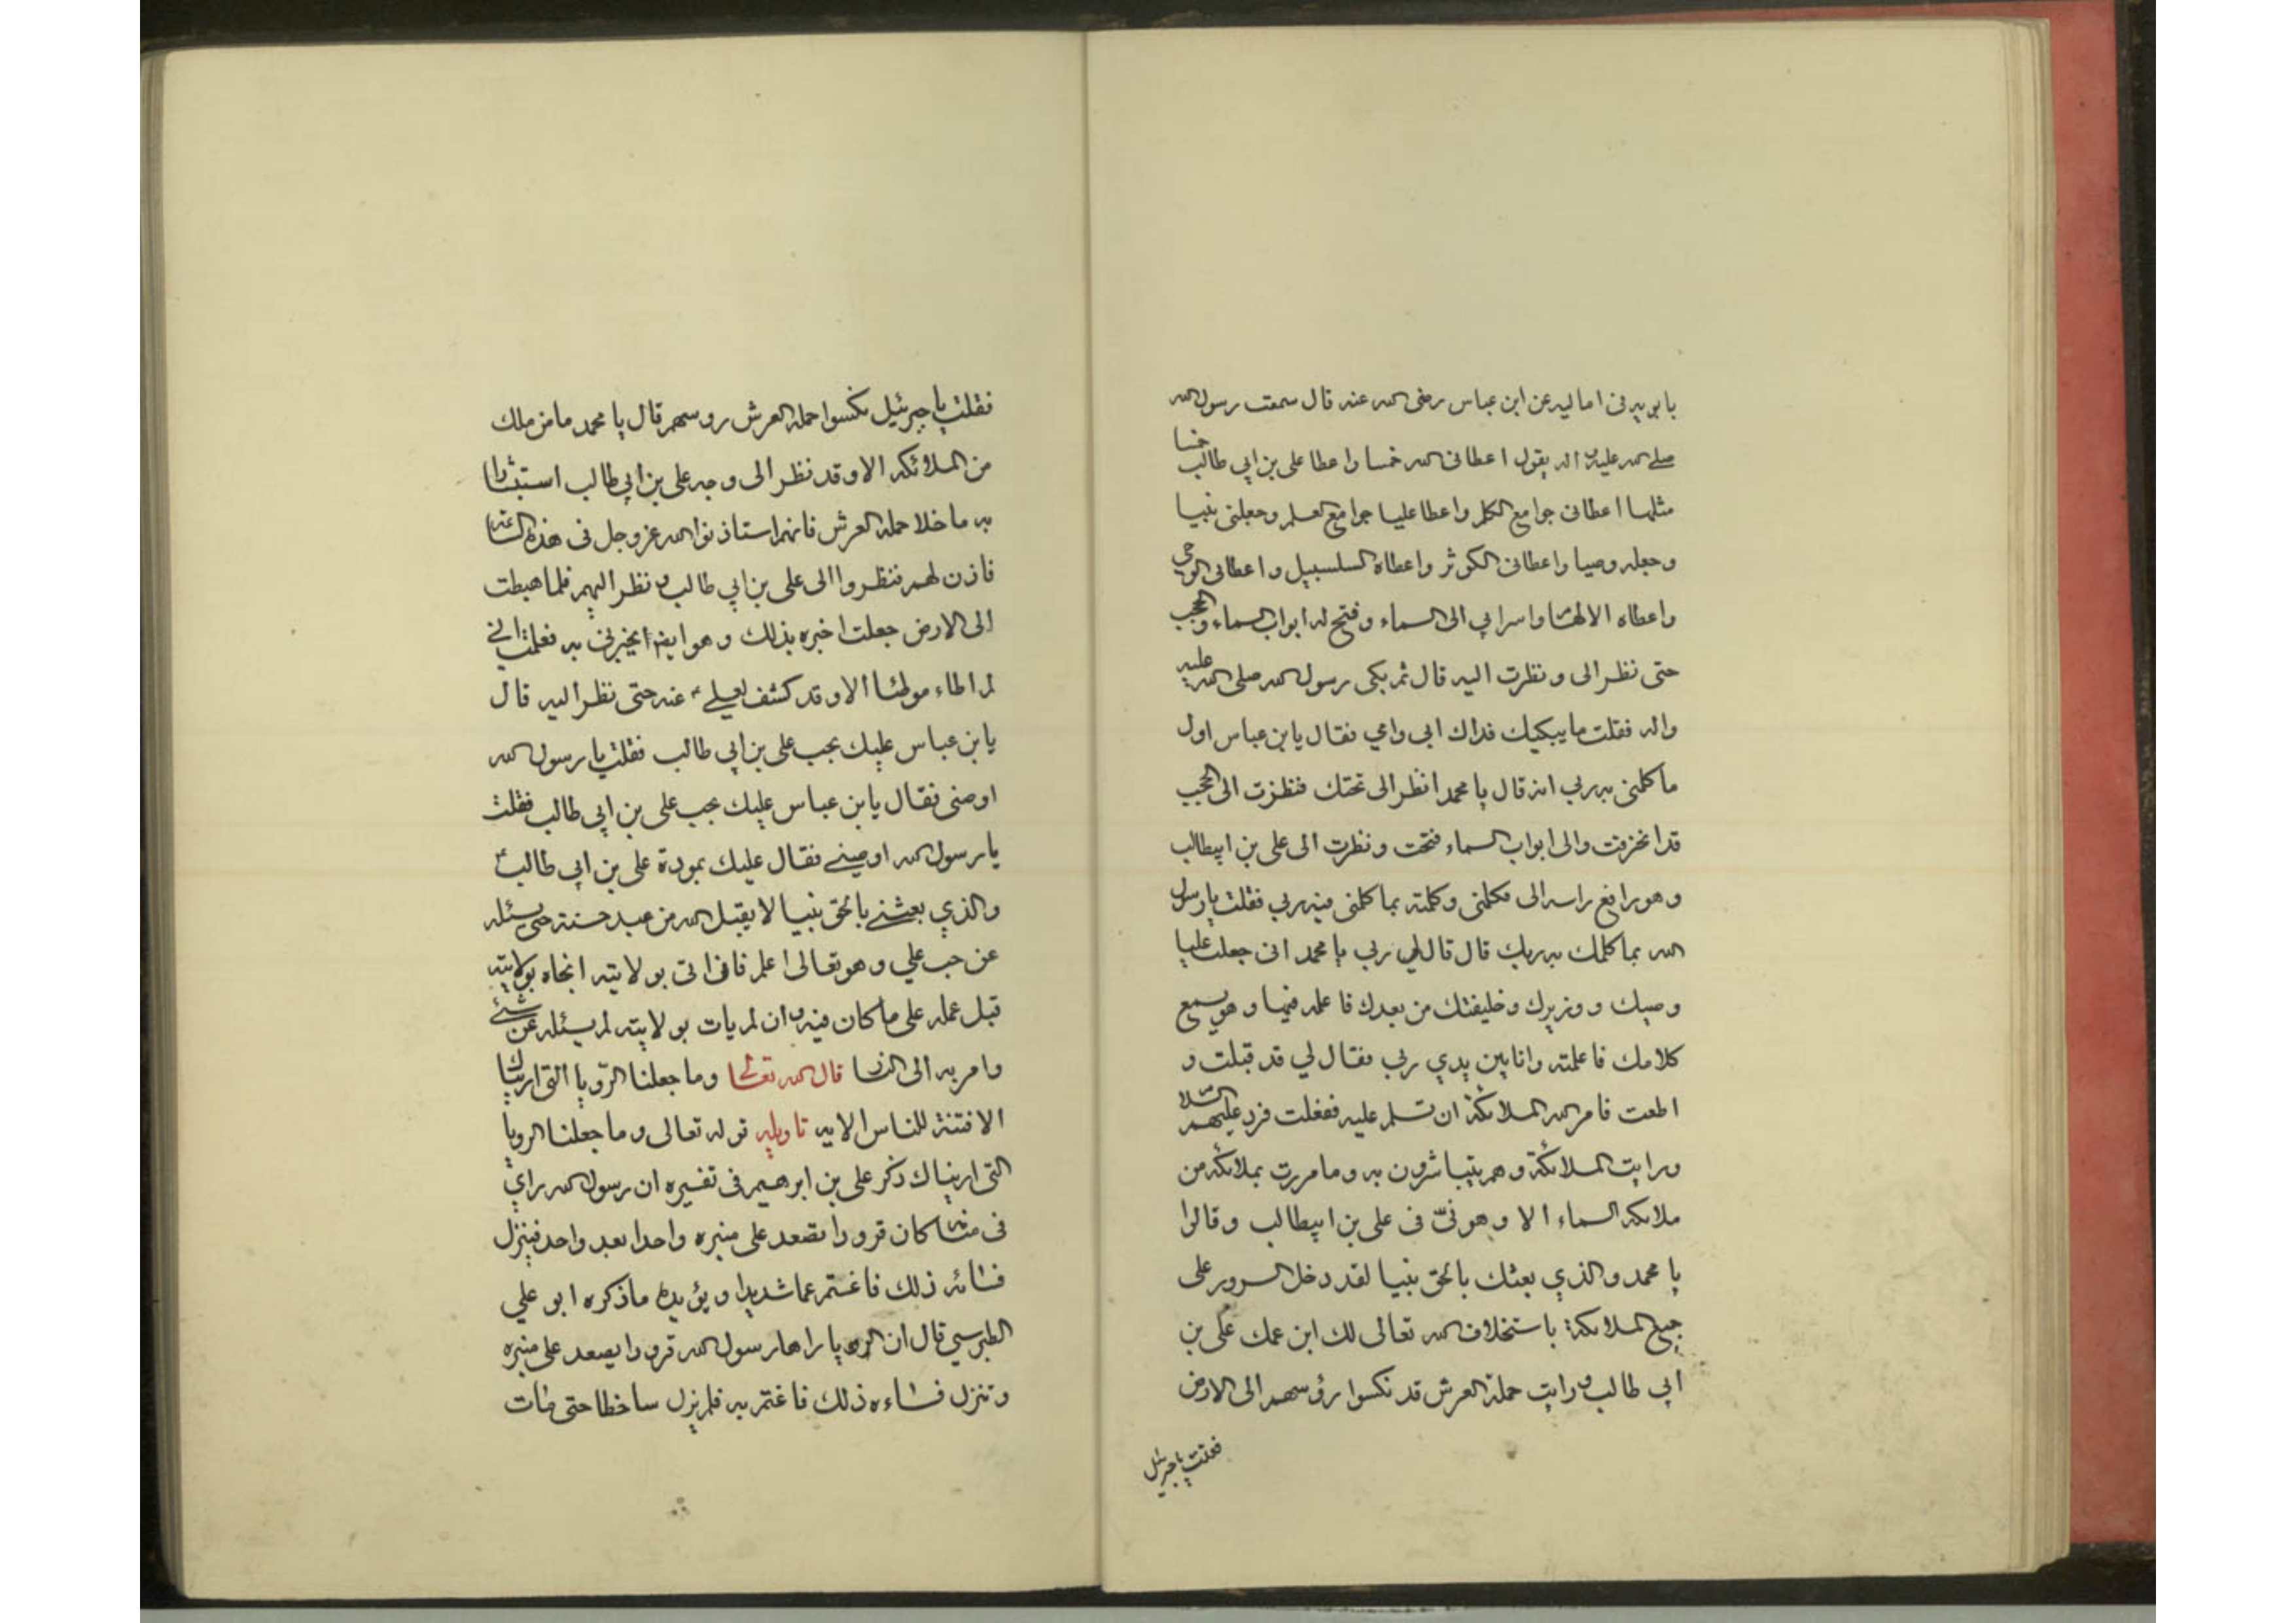 بابويه في اماليه عن ابن عباس رضى الله عنه قال سمعت رسول الله
صلى الله عليه واله يقول اعطاني الله خمسا واعطا علي بن ابي طالب خمسا
مثلها اعطاني جوامع الكلم واعطا عليا جوامع العلم وجعلني نبيا
وجعله وصيا واعطاني الكوثر واعطاه السلسبيل واعطاني الوحي
واعطاه الالها واسرا بي الى السماء وفتح له ابواب السماء والحجب
حتى نظر الى ونظرت اليه قال ثم بكى رسول الله صلى الله عليه
واله فقلت ما يبكيك فداك ابي وامي فقال يابن عباس اول
ما كلمني به ربي انه قال يا محمد انظر الى تحتك فنظرت الى الحجب
قد انخرقت والى ابواب السماء فتحت ونظرت الى علي بن ابيطالب
وهو رافع راسه الى فكلمني وكلمته بما كلمني فيه ربي فقلت يا رسول
الله بما كلمك به ربك قال قال لي ربي يا محمد اني جعلت عليا
وصيك ووزيرك وخليفتك من بعدك فاعلمه فيها وهو يسمع
كلامك فاعلمته وانا بين يدي ربي فقال لي قد قبلت و
اطعت فامر الله الملائكة ان تسلم عليه ففعلت فرد عليهم السلا
ورايت الملائكة وهم يتباشرون به وما مررت بملائكة من
ملائكة السماء الا وهو في علي بن ابيطالب وقالوا
يا محمد والذي بعثك بالحق نبيا لقد دخل السرور على
جميع الملائكة باستخلاف الله تعالى لك ابن عمك علي بن
ابي طالب ورايت حملة العرش قد نكسوا رؤسهم الى الارض
فقلت يا جبرئيل
فقلت يا جبرئيل نكسوا حملة العرش روسهم قال يا محمد ما من ملك
من الملائكة الا وقد نظر الى وجه علي بن ابي طالب استبشارا
به ما خلا حملة العرش فانهم استاذنوا الله عز وجل في هذه الساعة
فاذن لهم فنظروا الى علي بن ابي طالب ونظر اليهم فلما هبطت
الى الارض جعلت اخبره بذلك وهو ايضا يخبرني به فعلمت اني
لم اطاء موطئا الا وقد كشف لعلي ع عنه حتى نظر اليه قال
يابن عباس عليك بحب علي بن ابي طالب فقلت يا رسول الله
اوصني فقال يابن عباس عليك بحب علي بن ابي طالب فقلت
يا رسول الله اوصيني فقال عليك بمودة علي بن ابي طالب ع
والذي بعثني بالحق نبيا لا يقبل الله من عبد حسنة حتى يسئله
عن حب علي وهو تعالى اعلم فان اتى بولايته انجاه بولايته
قبل عمله على ما كان فيه وان لم يات بولايته لم يسئله عن شئ
وامر به الى النا قال الله تعالى وما جعلنا الرؤيا التي اريناك
الا فتنة للناس الايه تاويله قوله تعالى وما جعلنا الرويا
التي اريناك ذكر علي بن ابرهيم في تفسيره ان رسول الله راي
في منامه كان قرودا تصعد على منبره واحدا بعد واحد فينزل
فسائه ذلك فاغتم غما شديدا ويؤيده ما ذكره ابو علي
الطبرسي قال ان الرويا راها رسول الله قرودا يصعد على منبره
وتنزل فساءه ذلك فاغتم به فلم يزل ساخطا حتى مات